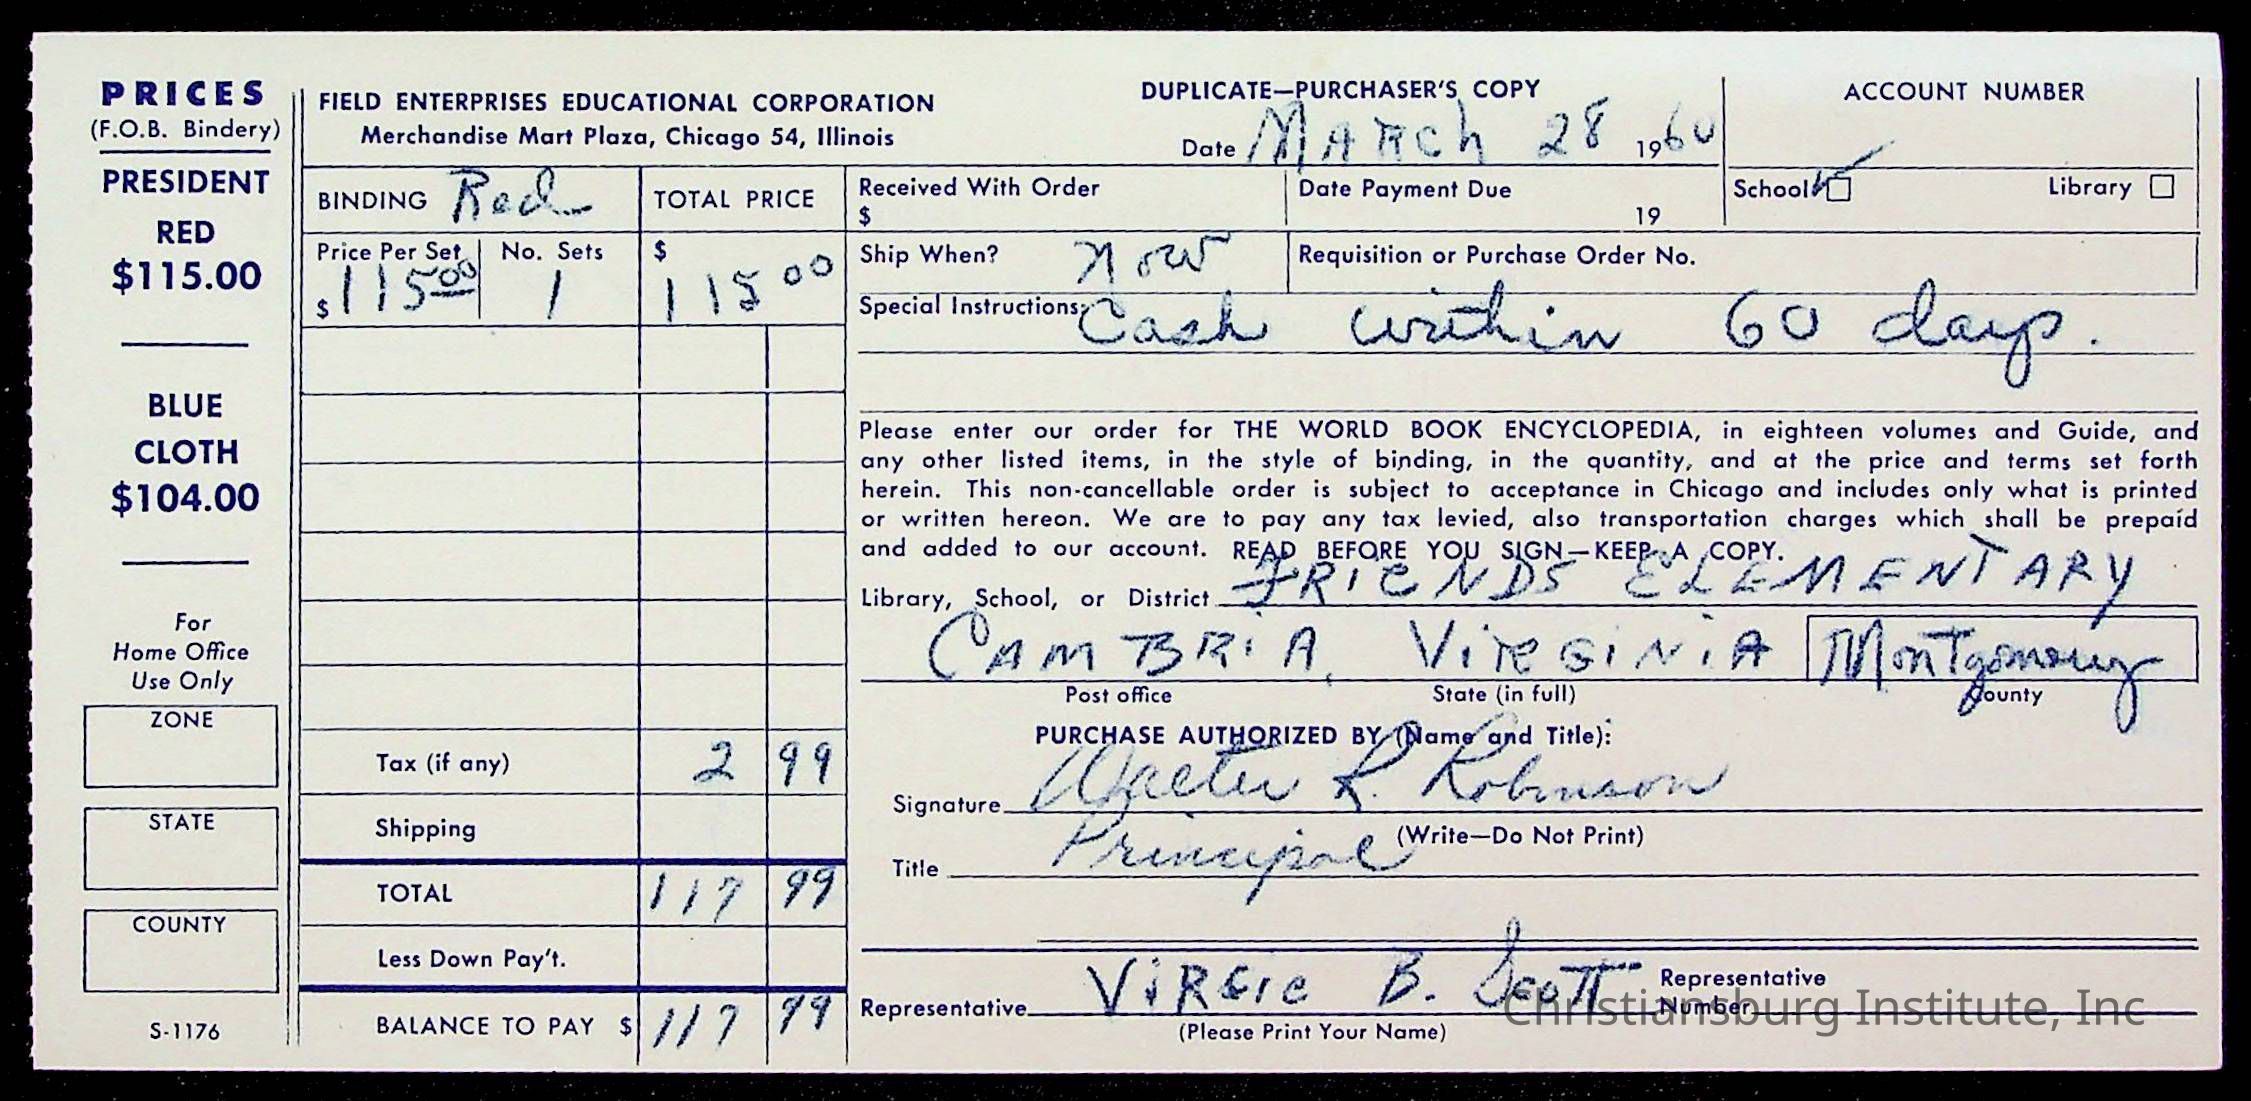 PRICES
(F.O.B. Bindery)
PRESIDENT
RED
$115.00
BLUE
CLOTH
$104.00
For
Home Office
Use Only
ZONE
STATE
COUNTY
S-1176
FIELD ENTERPRISES EDUCATIONAL CORPORATION
Merchandise Mart Plaza, Chicago 54, Illinois
DUPLICATE—PURCHASER'S COPY
Date MARCh 28 1960
ACCOUNT NUMBER
School Library
BINDING Red TOTAL PRICE
Price Per Set No. Sets $
$115 00 1 115 00
Tax (if any) 2 99
Shipping
TOTAL 117 99
Less Down Pay't.
BALANCE TO PAY $ 117 99
Received With Order
$
Date Payment Due
19
Ship When? Now
Requisition or Purchase Order No.
Special Instructions: Cash within 60 days.
Please enter our order for THE WORLD BOOK ENCYCLOPEDIA, in eighteen volumes and Guide, and
any other listed items, in the style of binding, in the quantity, and at the price and terms set forth
herein. This non-cancellable order is subject to acceptance in Chicago and includes only what is printed
or written hereon. We are to pay any tax levied, also transportation charges which shall be prepaid
and added to our account. READ BEFORE YOU SIGN—KEEP A COPY.
Library, School, or District FRIENDS ELEMENTARY
CAMBRiA, ViRGiNiA Montgomery
Post office State (in full) County
PURCHASE AUTHORIZED BY (Name and Title):
Signature Walter R. Robinson
(Write—Do Not Print)
Title Principal
Representative ViRGie B. Scott Representative
Number
(Please Print Your Name)
Christiansburg Institute, Inc